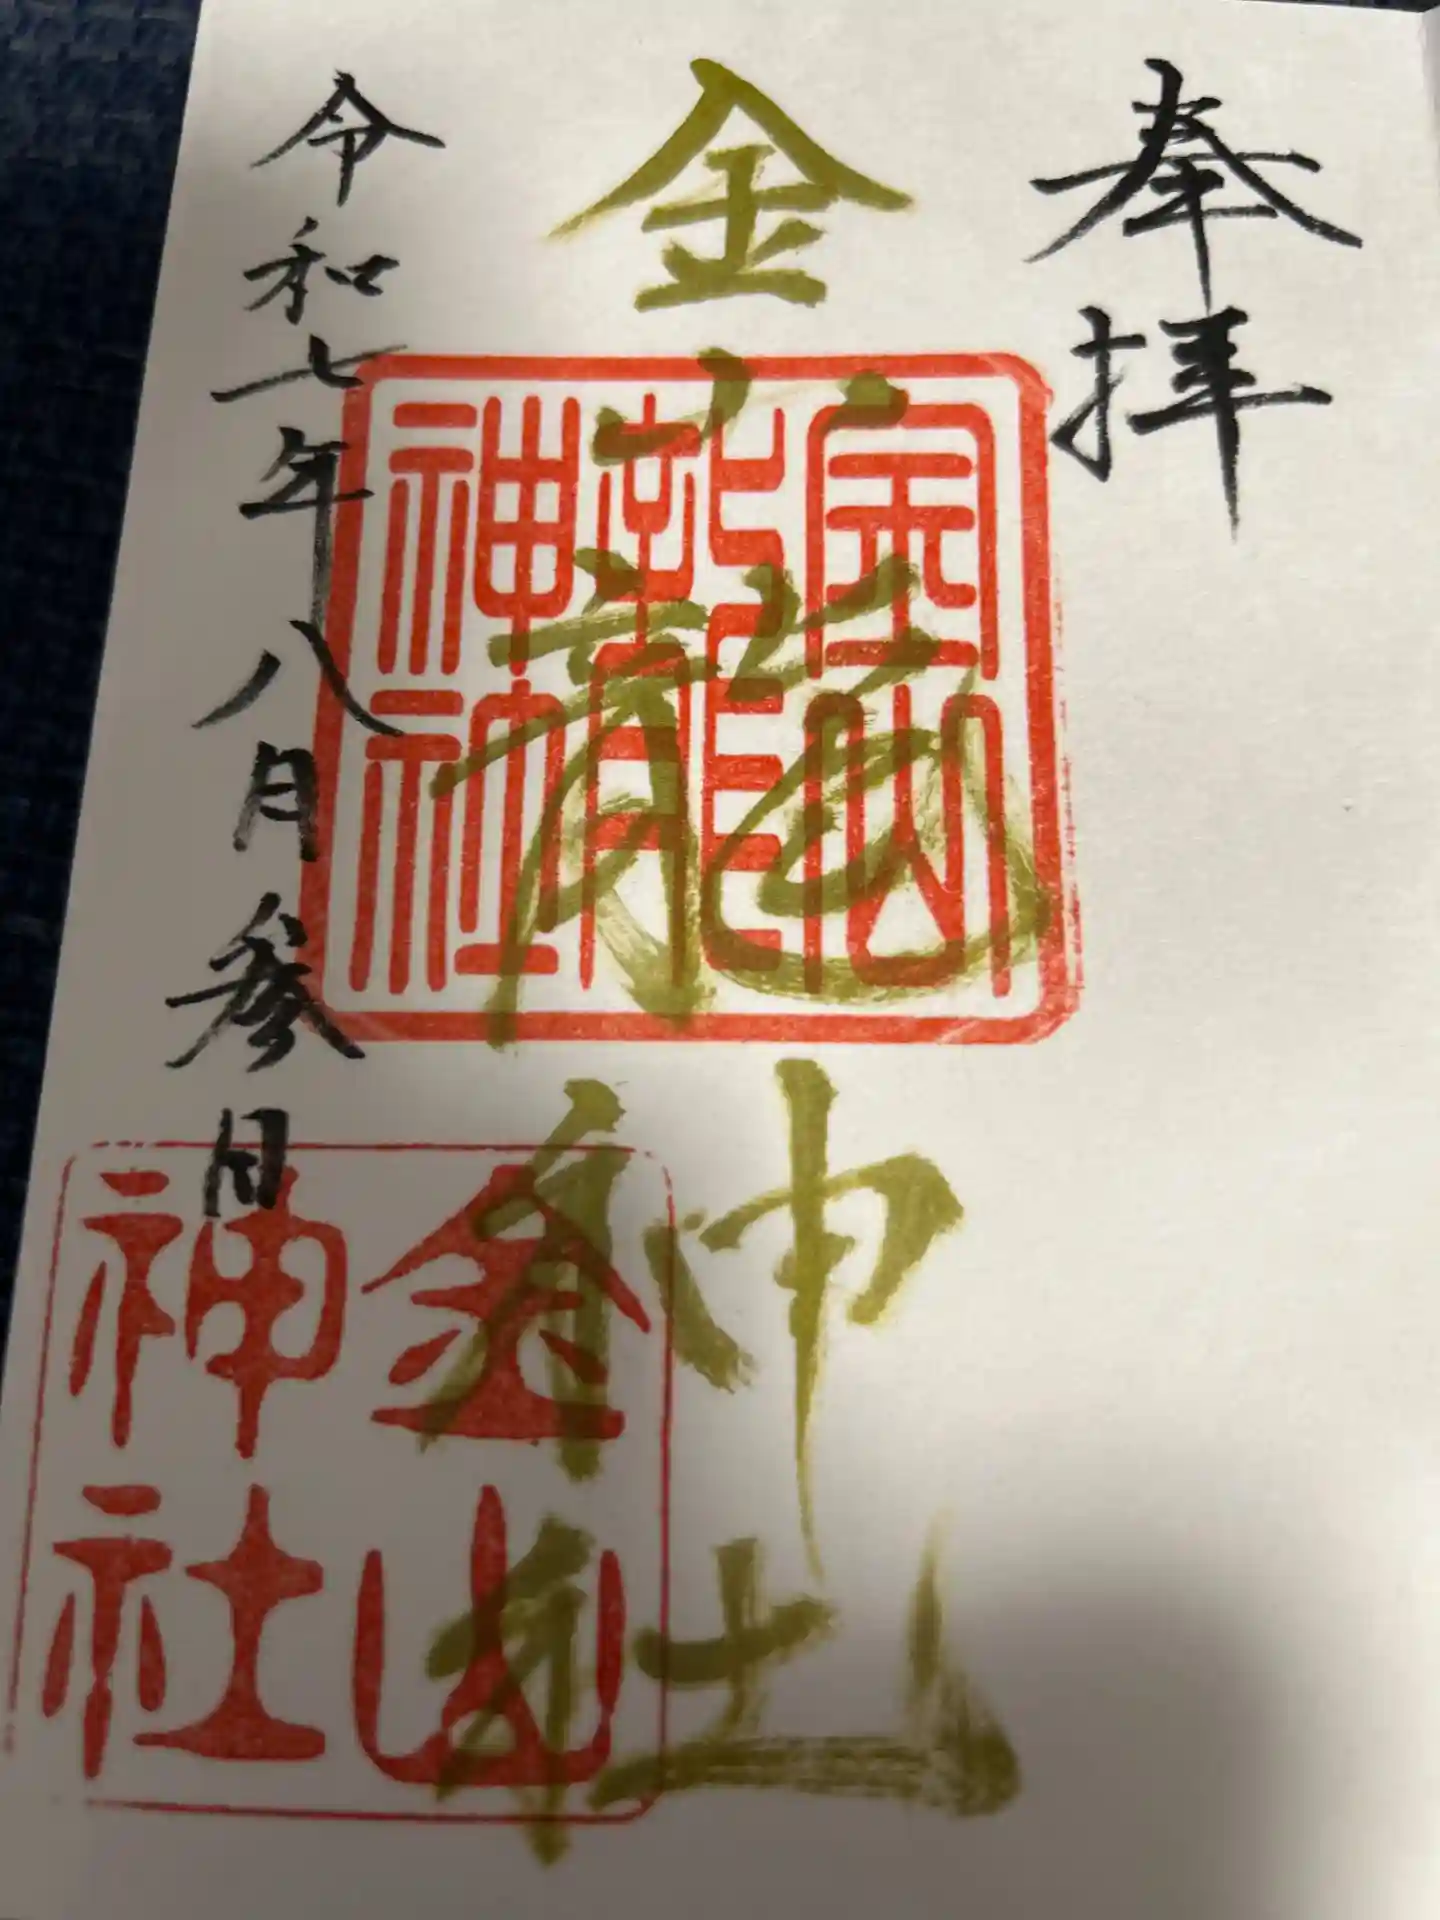 奉拝
金山龍神社
金山
龍
神社
令和七年八月参日
金山
神社